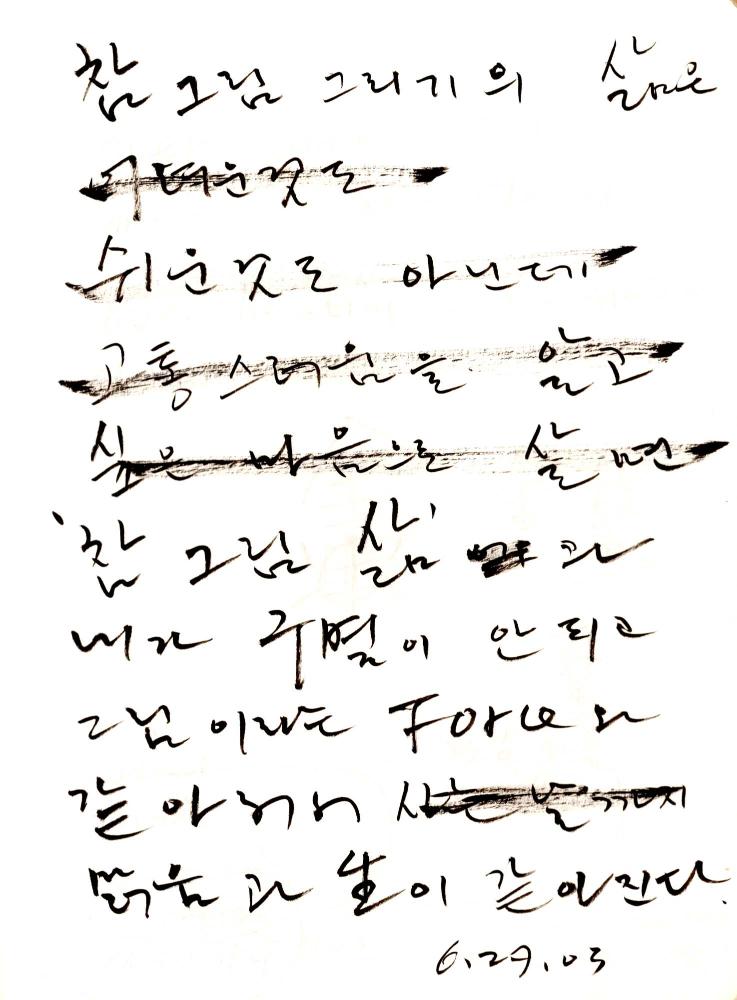 참 그림 그리기의 삶은
어려운것도
쉬운것도 아닌데
고통스러움을 알고
싶은 마음으로 살면
'참 그림 삶' 과
내가 구별이 안되고
그림이라는 Force와
같아져서 사는날까지
맑음과 生이 같아진다.
6.29.03